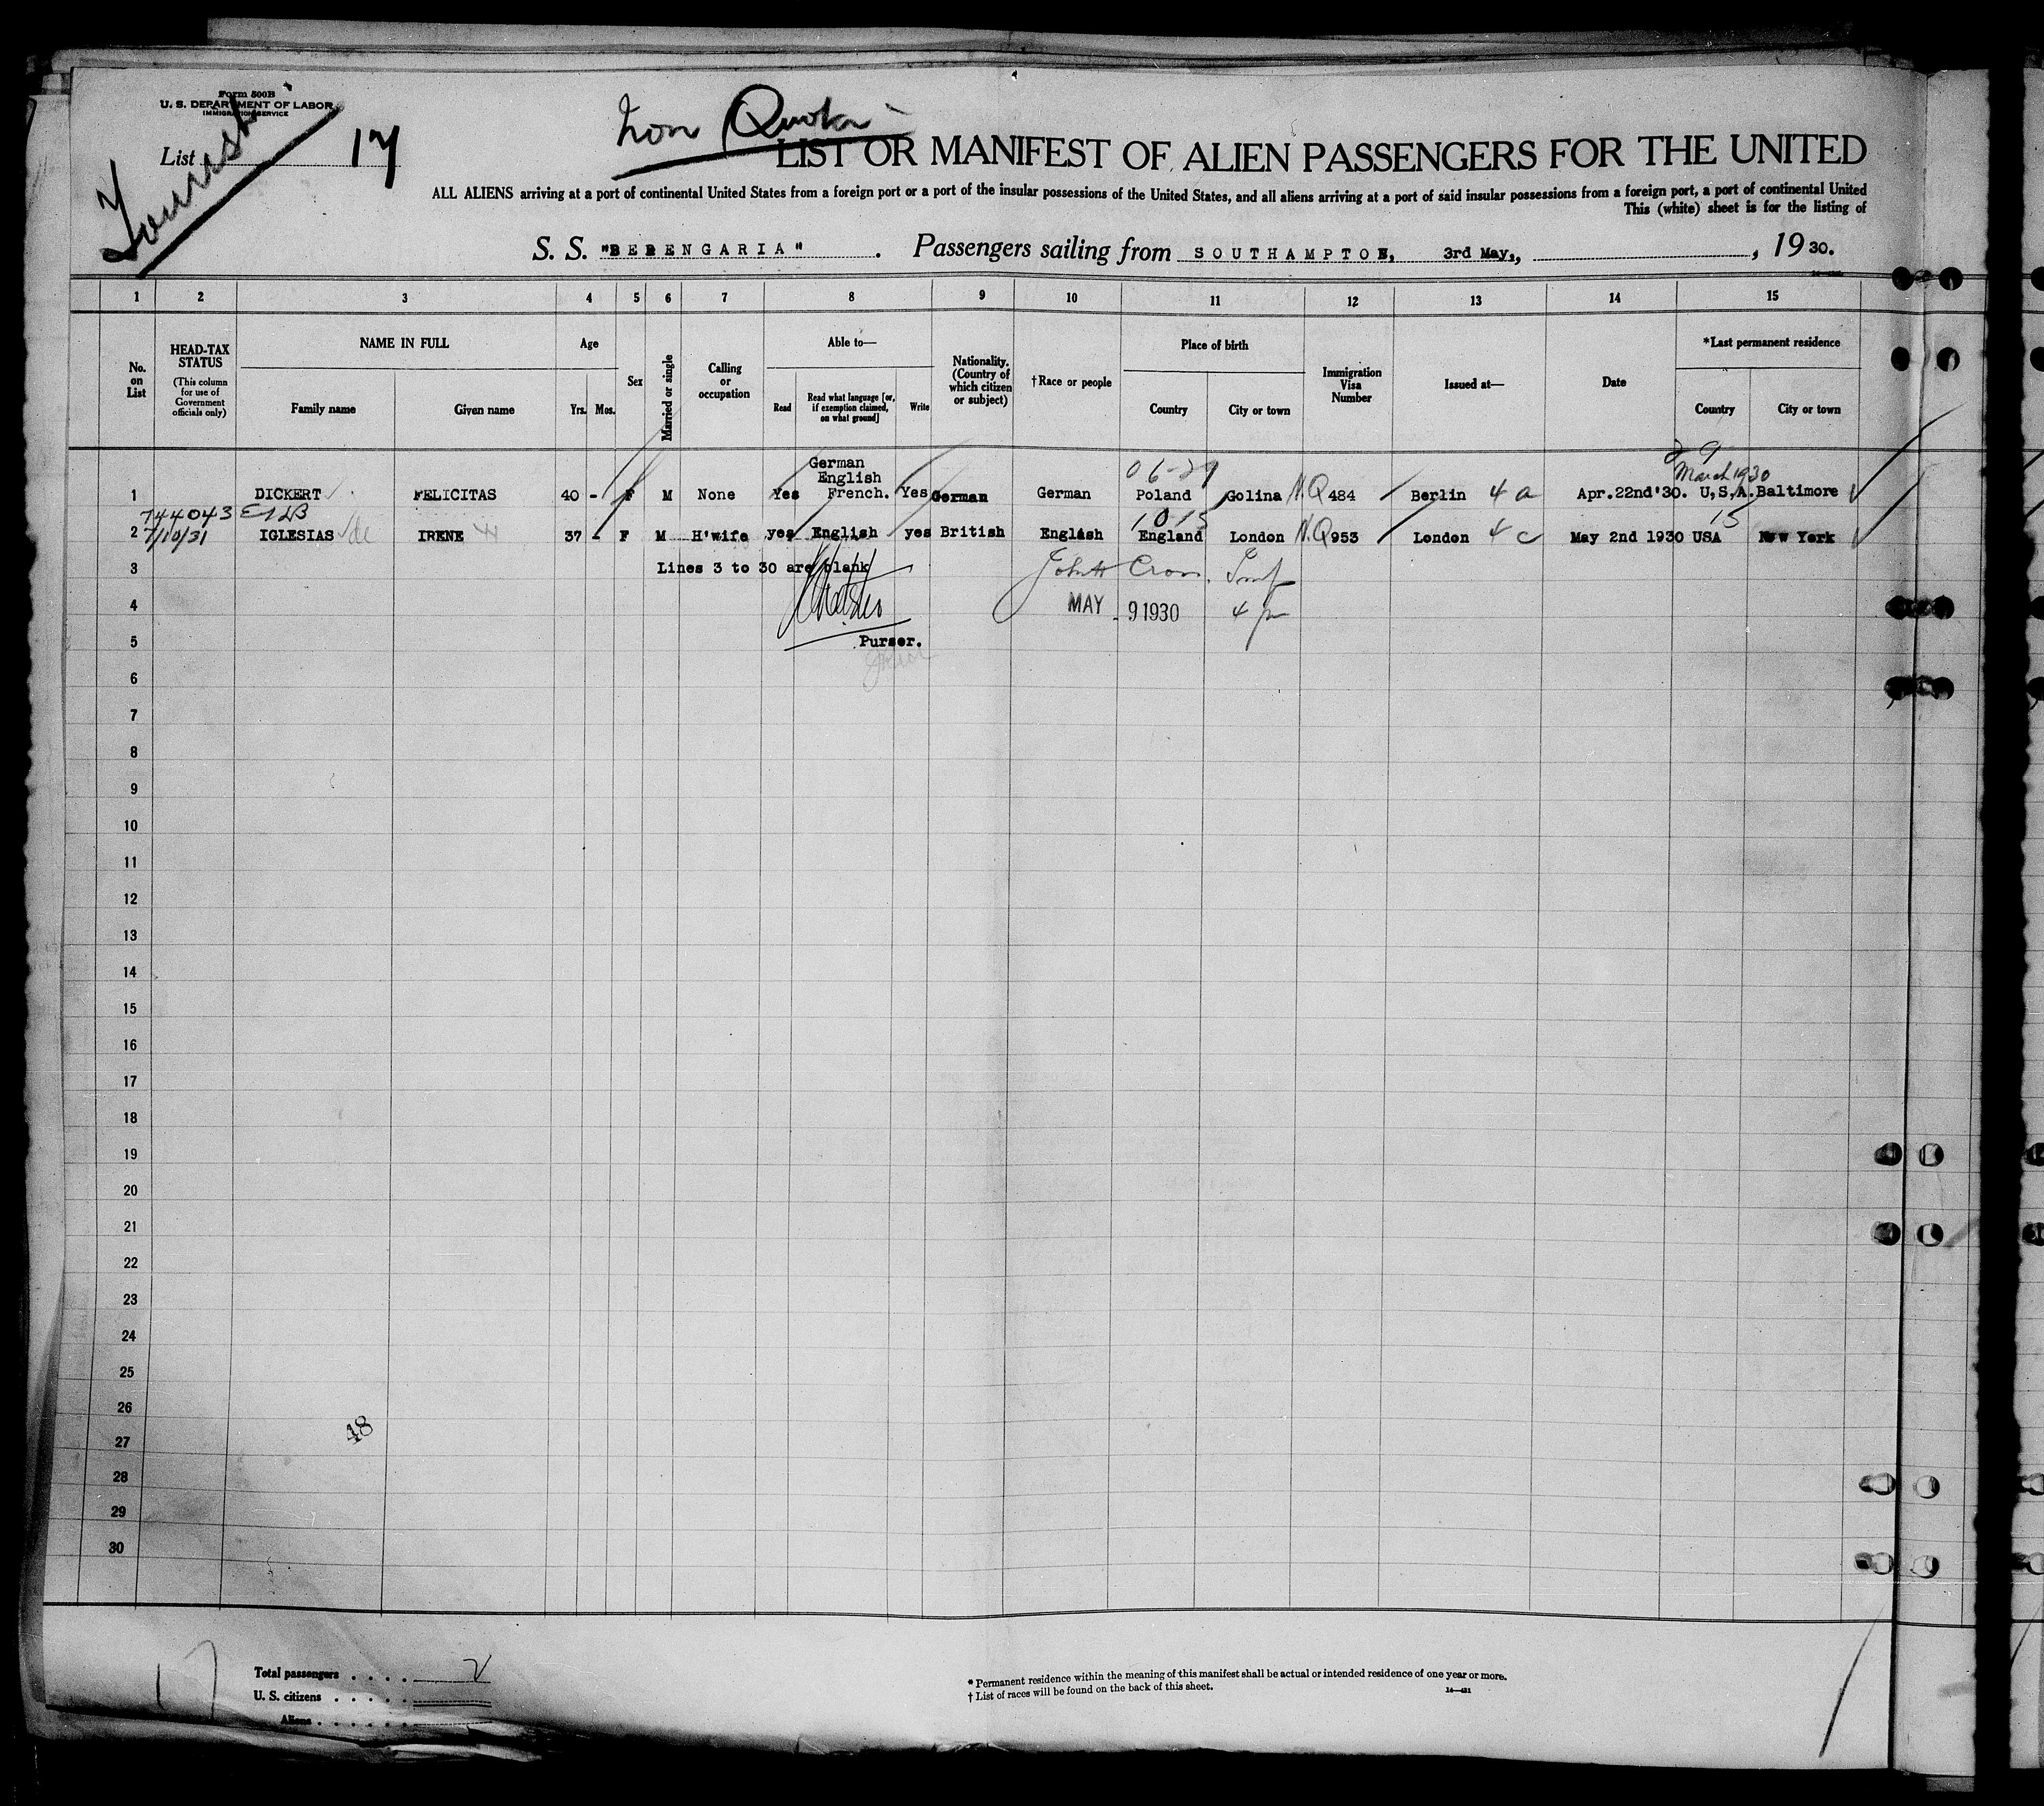 Form 500B
U. S. DEPARTMENT OF LABOR
IMMIGRATION SERVICE
Tourist
List 17
Non Quota
LIST OR MANIFEST OF ALIEN PASSENGERS FOR THE UNITED
ALL ALIENS arriving at a port of continental United States from a foreign port or a port of the insular possessions of the United States, and all aliens arriving at a port of said insular possessions from a foreign port, a port of continental United
This (white) sheet is for the listing of
S. S. "BERENGARIA". Passengers sailing from SOUTHAMPTON, 3rd May., , 19 30.
1 2 3 4 5 6 7 8 9 10 11 12 13 14 15
No. on List
HEAD-TAX STATUS
(This column for use of Government officials only)
NAME IN FULL
Family name Given name
Age
Yrs. Mos.
Sex
Married or single
Calling or occupation
Able to—
Read
Read what language [or, if exemption claimed, on what ground]
Write
Nationality. (Country of which citizen or subject)
†Race or people
Place of birth
Country City or town
Immigration Visa Number
Issued at—
Date
*Last permanent residence
Country City or town
March 1930
German
English
1 DICKERT FELICITAS 40 - F M None Yes French. Yes German German Poland Golina N.Q 484 Berlin 4 a Apr.22nd'30. U.S.A. Baltimore
744043
7/10/31
2 IGLESIAS de IRENE 37 - F M H'wife yes English yes British English England London N.Q 953 London 4 c May 2nd 1930 USA New York
3 Lines 3 to 30 are blank
4 MAY 9 1930
5 Purser.
6
7
8
9
10
11
12
13
14
15
16
17
18
19
20
21
22
23
24
25
26
48
27
28
29
30
17
Total passengers . . . . 2
U. S. citizens . . . . .
Aliens . . . . . .
* Permanent residence within the meaning of this manifest shall be actual or intended residence of one year or more.
† List of races will be found on the back of this sheet.
14—421